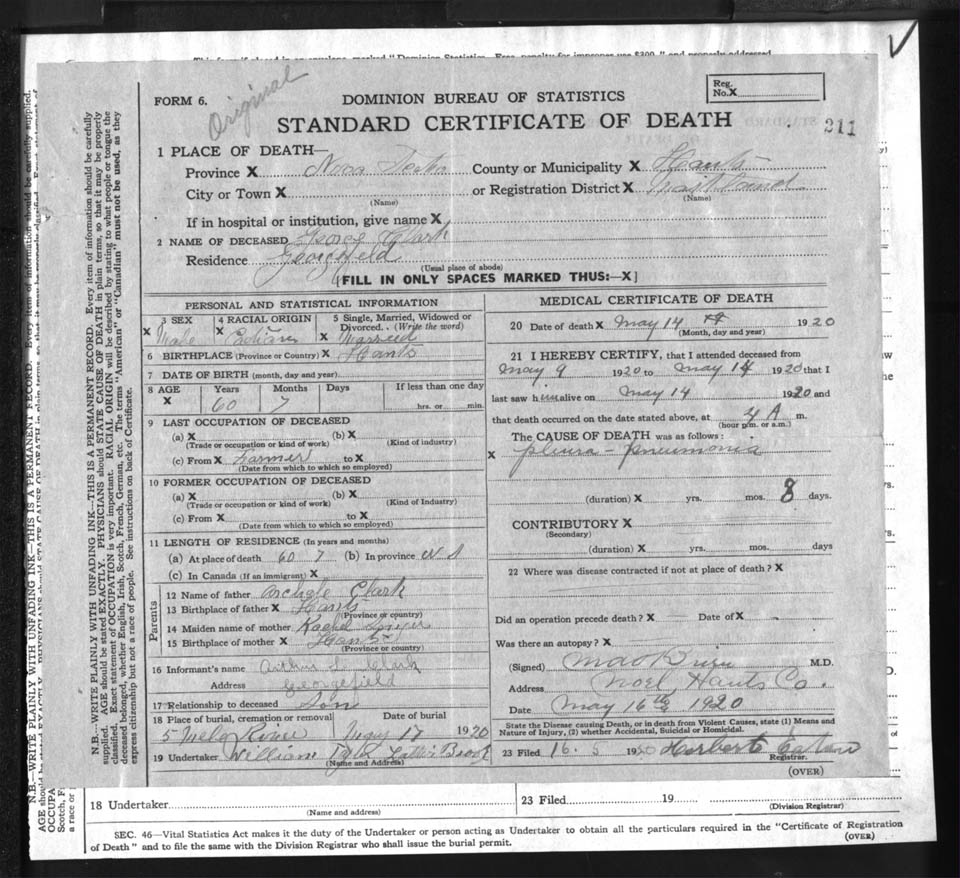 Original
FORM 6.
DOMINION BUREAU OF STATISTICS
Reg. No. X
STANDARD CERTIFICATE OF DEATH
211
1 PLACE OF DEATH—
Province X Nova Scotia County or Municipality X Hants
City or Town X or Registration District X
(Name) (Name)
If in hospital or institution, give name X
2 NAME OF DECEASED George Clark
Residence Georgefield
(Usual place of abode)
[FILL IN ONLY SPACES MARKED THUS:—X]
PERSONAL AND STATISTICAL INFORMATION
3 SEX 4 RACIAL ORIGIN 5 Single, Married, Widowed or Divorced. (Write the word)
X Male X X Married
6 BIRTHPLACE (Province or Country) X Hants
7 DATE OF BIRTH (month, day and year)
8 AGE Years Months Days If less than one day
X 60 7 hrs. or min.
9 LAST OCCUPATION OF DECEASED
(a) X (b) X
(Trade or occupation or kind of work) (Kind of industry)
(c) From X Farmer to X
(Date from which to which so employed)
10 FORMER OCCUPATION OF DECEASED
(a) X (b) X
(Trade or occupation or kind of work) (Kind of Industry)
(c) From X to X
(Date from which to which so employed)
11 LENGTH OF RESIDENCE (In years and months)
(a) At place of death 60 7 (b) In province
(c) In Canada (If an immigrant) X
Parents
12 Name of father Clark
13 Birthplace of father X Hants
(Province or country)
14 Maiden name of mother Rachel
15 Birthplace of mother X Hants
(Province or country)
16 Informant's name Arthur Clark
Address Georgefield
17 Relationship to deceased Son
18 Place of burial, cremation or removal Date of burial
5 Mile River May 17 1920
19 Undertaker William
(Name and Address)
MEDICAL CERTIFICATE OF DEATH
20 Date of death X May 14 th 1920
(Month, day and year)
21 I HEREBY CERTIFY, that I attended deceased from
May 9 1920 to May 14 1920 that I
last saw him alive on May 14 1920 and
that death occurred on the date stated above, at 4 A m.
(hour p.m. or a.m.)
The CAUSE OF DEATH was as follows:
X pleuro-pneumonia
(duration) X yrs. mos. 8 days.
CONTRIBUTORY X
(Secondary)
(duration) X yrs. mos. days
22 Where was disease contracted if not at place of death? X
Did an operation precede death? X Date of X
Was there an autopsy? X
(Signed) M.D.
Address Noel Hants Co
Date May 16th 1920
State the Disease causing Death, or in death from Violent Causes, state (1) Means and
Nature of Injury, (2) whether Accidental, Suicidal or Homicidal.
23 Filed 16. 5 1920 Herbert
Registrar.
(OVER)
N.B.—WRITE PLAINLY WITH UNFADING INK—THIS IS A PERMANENT RECORD. Every item of information should be carefully
supplied. AGE should be stated EXACTLY. PHYSICIANS should STATE CAUSE OF DEATH in plain terms, so that it may be properly
classified. Exact statement of OCCUPATION is very important. RACIAL ORIGIN will be described by stating to what people or tongue the
deceased belonged, whether English, Irish, Scotch, French, German, etc. The terms "American" or "Canadian" must not be used, as they
express citizenship but not a race of people. See instructions on back of Certificate.
18 Undertaker
(Name and address)
23 Filed 19
(Division Registrar)
SEC. 46—Vital Statistics Act makes it the duty of the Undertaker or person acting as Undertaker to obtain all the particulars required in the "Certificate of Registration
of Death" and to file the same with the Division Registrar who shall issue the burial permit.
(OVER)